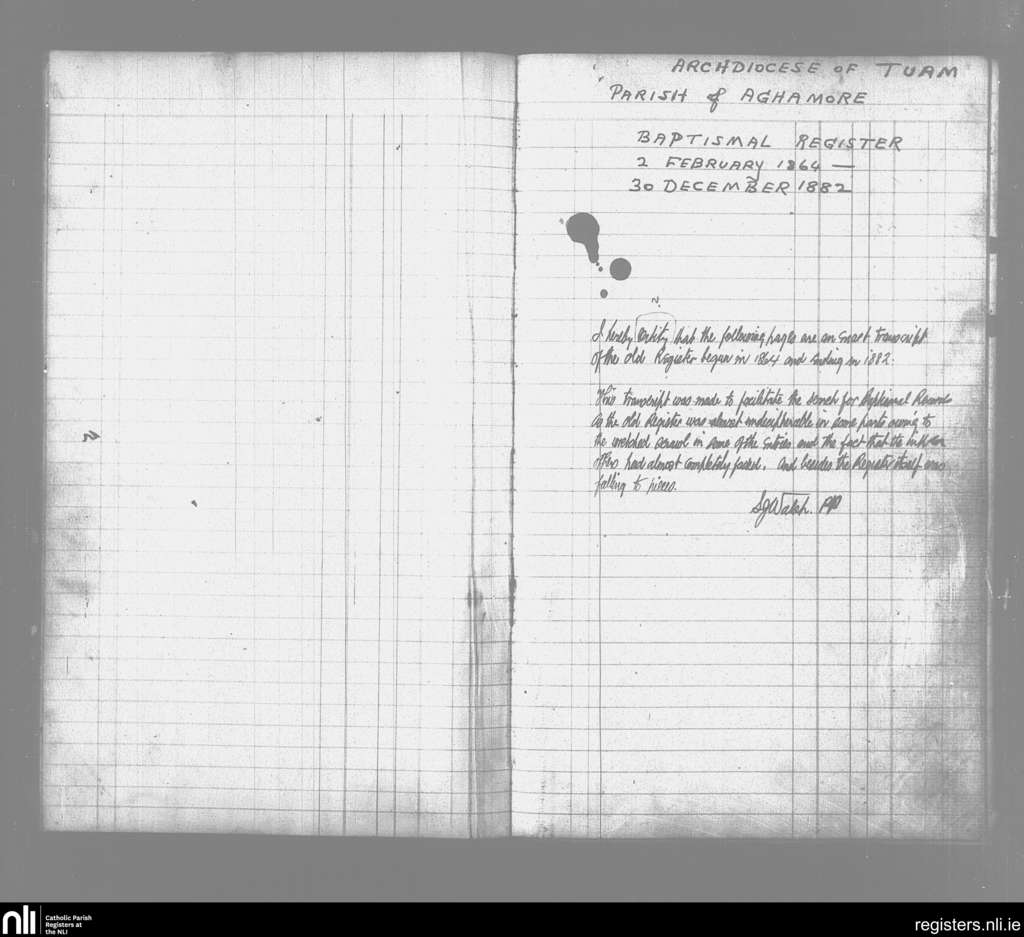 ARCHDIOCESE OF TUAM
PARISH of AGHAMORE
BAPTISMAL REGISTER
2 FEBRUARY 1864 —
30 DECEMBER 1882
I hereby certify that the following pages are an exact transcript
of the old Register begun in 1864 and ending in 1882.
This transcript was made to facilitate the search for Baptismal Records
as the old Register was almost indecipherable in some parts owing to
the wretched scrawl in some of the entries and the fact that the ink in
others had almost completely faded. And besides the Register itself was
falling to pieces.
SJ Walsh. PP
nli
Catholic Parish
Registers at
the NLI
registers.nli.ie